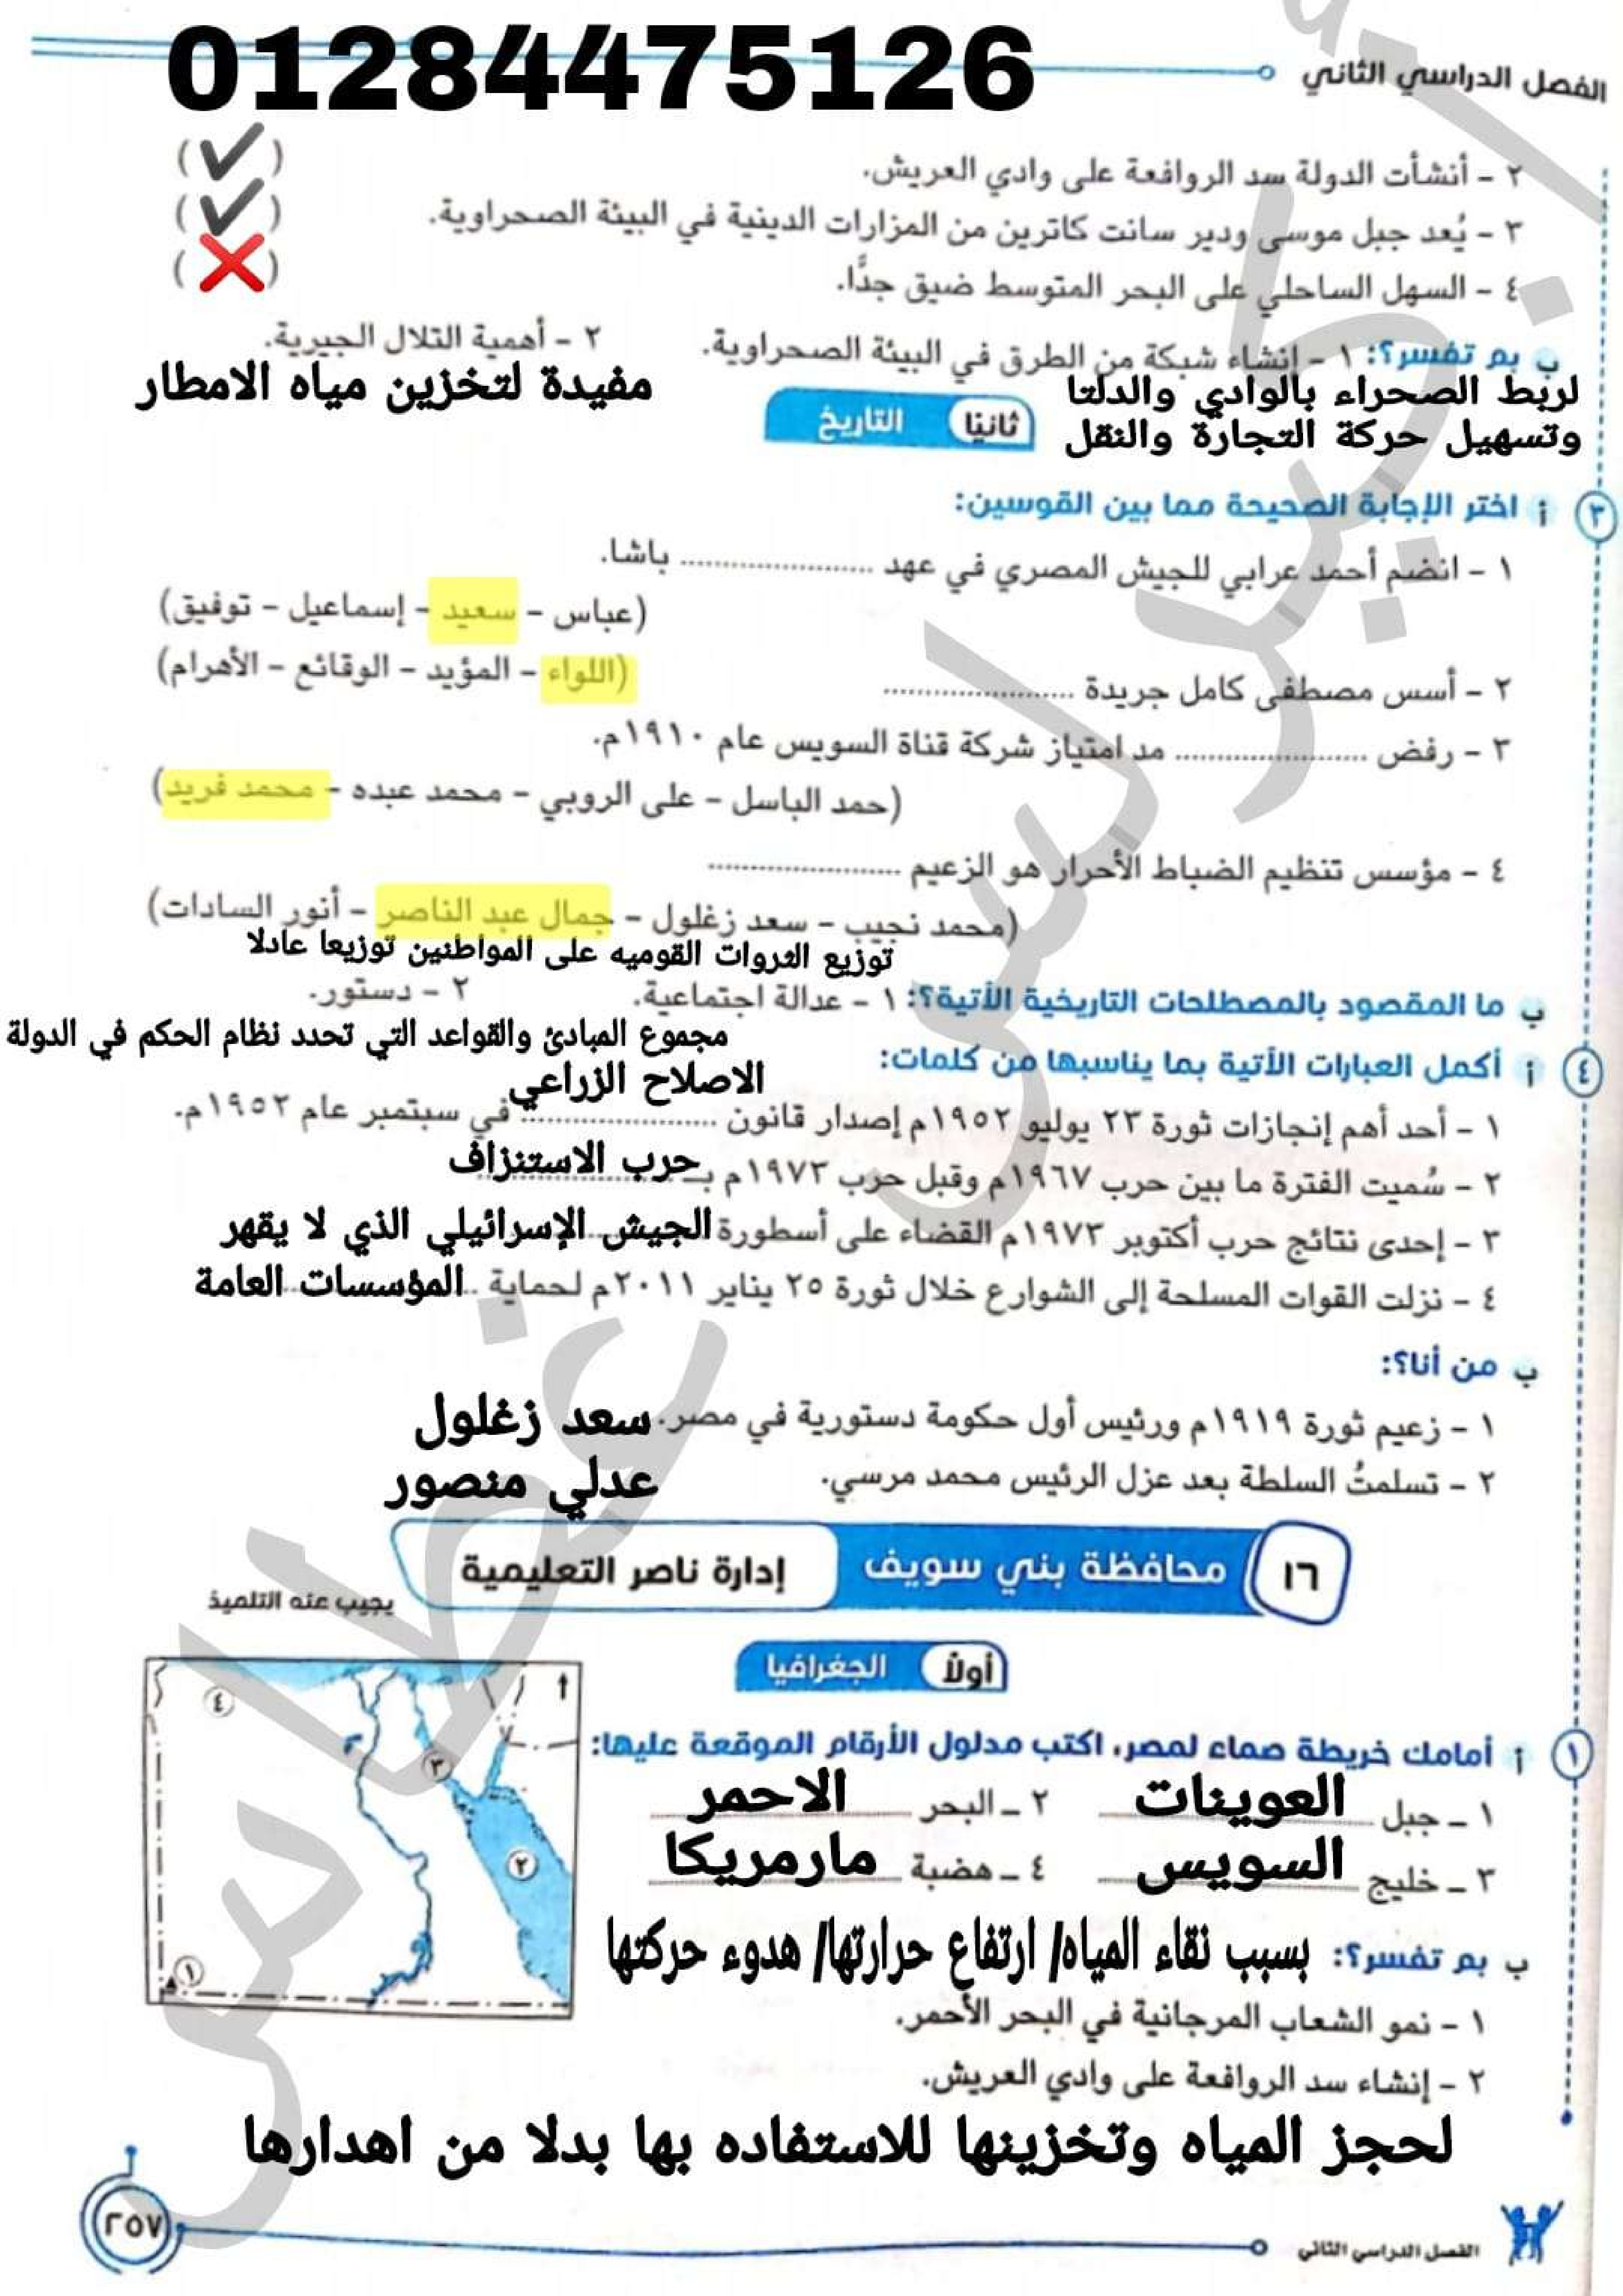 01284475126
الفصل الدراسي الثاني
٢ - أنشأت الدولة سد الروافعة على وادي العريش. (✔)
٣ - يُعد جبل موسى ودير سانت كاترين من المزارات الدينية في البيئة الصحراوية. (✔)
٤ - السهل الساحلي على البحر المتوسط ضيق جدًّا. (❌)
ب بم تفسر؟: ١ - إنشاء شبكة من الطرق في البيئة الصحراوية. ٢ - أهمية التلال الجيرية.
لربط الصحراء بالوادي والدلتا مفيدة لتخزين مياه الامطار
وتسهيل حركة التجارة والنقل
ثانيًا التاريخ
٣ أ اختر الإجابة الصحيحة مما بين القوسين:
١ - انضم أحمد عرابي للجيش المصري في عهد .................... باشا.
(عباس - سعيد - إسماعيل - توفيق)
٢ - أسس مصطفى كامل جريدة .................... (اللواء - المؤيد - الوقائع - الأهرام)
٣ - رفض .................... مد امتياز شركة قناة السويس عام ١٩١٠م.
(حمد الباسل - على الروبي - محمد عبده - محمد فريد)
٤ - مؤسس تنظيم الضباط الأحرار هو الزعيم ....................
(محمد نجيب - سعد زغلول - جمال عبد الناصر - أنور السادات)
توزيع الثروات القوميه على المواطنين توزيعا عادلا
ب ما المقصود بالمصطلحات التاريخية الآتية؟: ١ - عدالة اجتماعية. ٢ - دستور.
مجموع المبادئ والقواعد التي تحدد نظام الحكم في الدولة
٤ أ أكمل العبارات الآتية بما يناسبها من كلمات:
الاصلاح الزراعي
١ - أحد أهم إنجازات ثورة ٢٣ يوليو ١٩٥٢م إصدار قانون .................... في سبتمبر عام ١٩٥٢م.
٢ - سُميت الفترة ما بين حرب ١٩٦٧م وقبل حرب ١٩٧٣م بـ حرب الاستنزاف
٣ - إحدى نتائج حرب أكتوبر ١٩٧٣م القضاء على أسطورة الجيش الإسرائيلي الذي لا يقهر
٤ - نزلت القوات المسلحة إلى الشوارع خلال ثورة ٢٥ يناير ٢٠١١م لحماية المؤسسات العامة
ب من أنا؟:
١ - زعيم ثورة ١٩١٩م ورئيس أول حكومة دستورية في مصر. سعد زغلول
٢ - تسلمتُ السلطة بعد عزل الرئيس محمد مرسي. عدلي منصور
١٦ محافظة بني سويف إدارة ناصر التعليمية
يجيب عنه التلميذ
أولاً الجغرافيا
١ أ أمامك خريطة صماء لمصر، اكتب مدلول الأرقام الموقعة عليها:
١ - جبل العوينات ٢ - البحر الاحمر
٣ - خليج السويس ٤ - هضبة مارمريكا
٤
٣
٢
١
ب بم تفسر؟: بسبب نقاء المياه/ ارتفاع حرارتها/ هدوء حركتها
١ - نمو الشعاب المرجانية في البحر الأحمر.
٢ - إنشاء سد الروافعة على وادي العريش.
لحجز المياه وتخزينها للاستفاده بها بدلا من اهدارها
الفصل الدراسي الثاني
٢٥٧